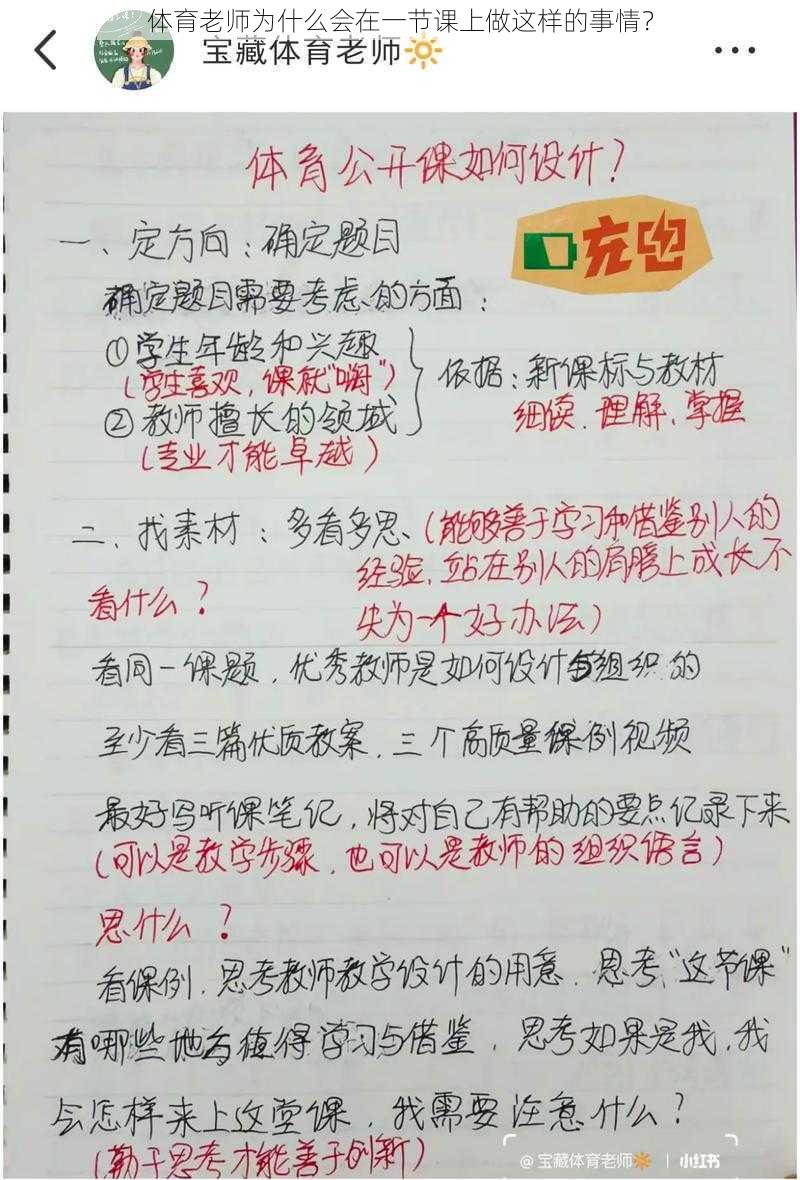 体育老师为什么会在一节课上做这样的事情？
宝藏体育老师
体育公开课如何设计？
一、定方向：确定题目
充电
确定题目需要考虑的方面：
①学生年龄和兴趣
(学生喜欢，课就“嗨”)
②教师擅长的领域
(专业才能卓越)
依据：新课标与教材
细读、理解、掌握
二、找素材：多看多思、(能够善于学习和借鉴别人的
经验，站在别人的肩膀上成长不
失为一个好办法)
看什么？
看同一课题，优秀教师是如何设计与组织的
至少看三篇优质教案，三个高质量课例视频
最好写听课笔记，将对自己有帮助的要点记录下来
(可以是教学步骤，也可以是教师的组织语言)
思什么？
看课例，思考教师教学设计的用意，思考“这节课”
有哪些地方值得学习与借鉴，思考如果是我，我
会怎样来上这堂课，我需要注意什么？
(勤于思考才能善于创新)
@宝藏体育老师 | 小红书